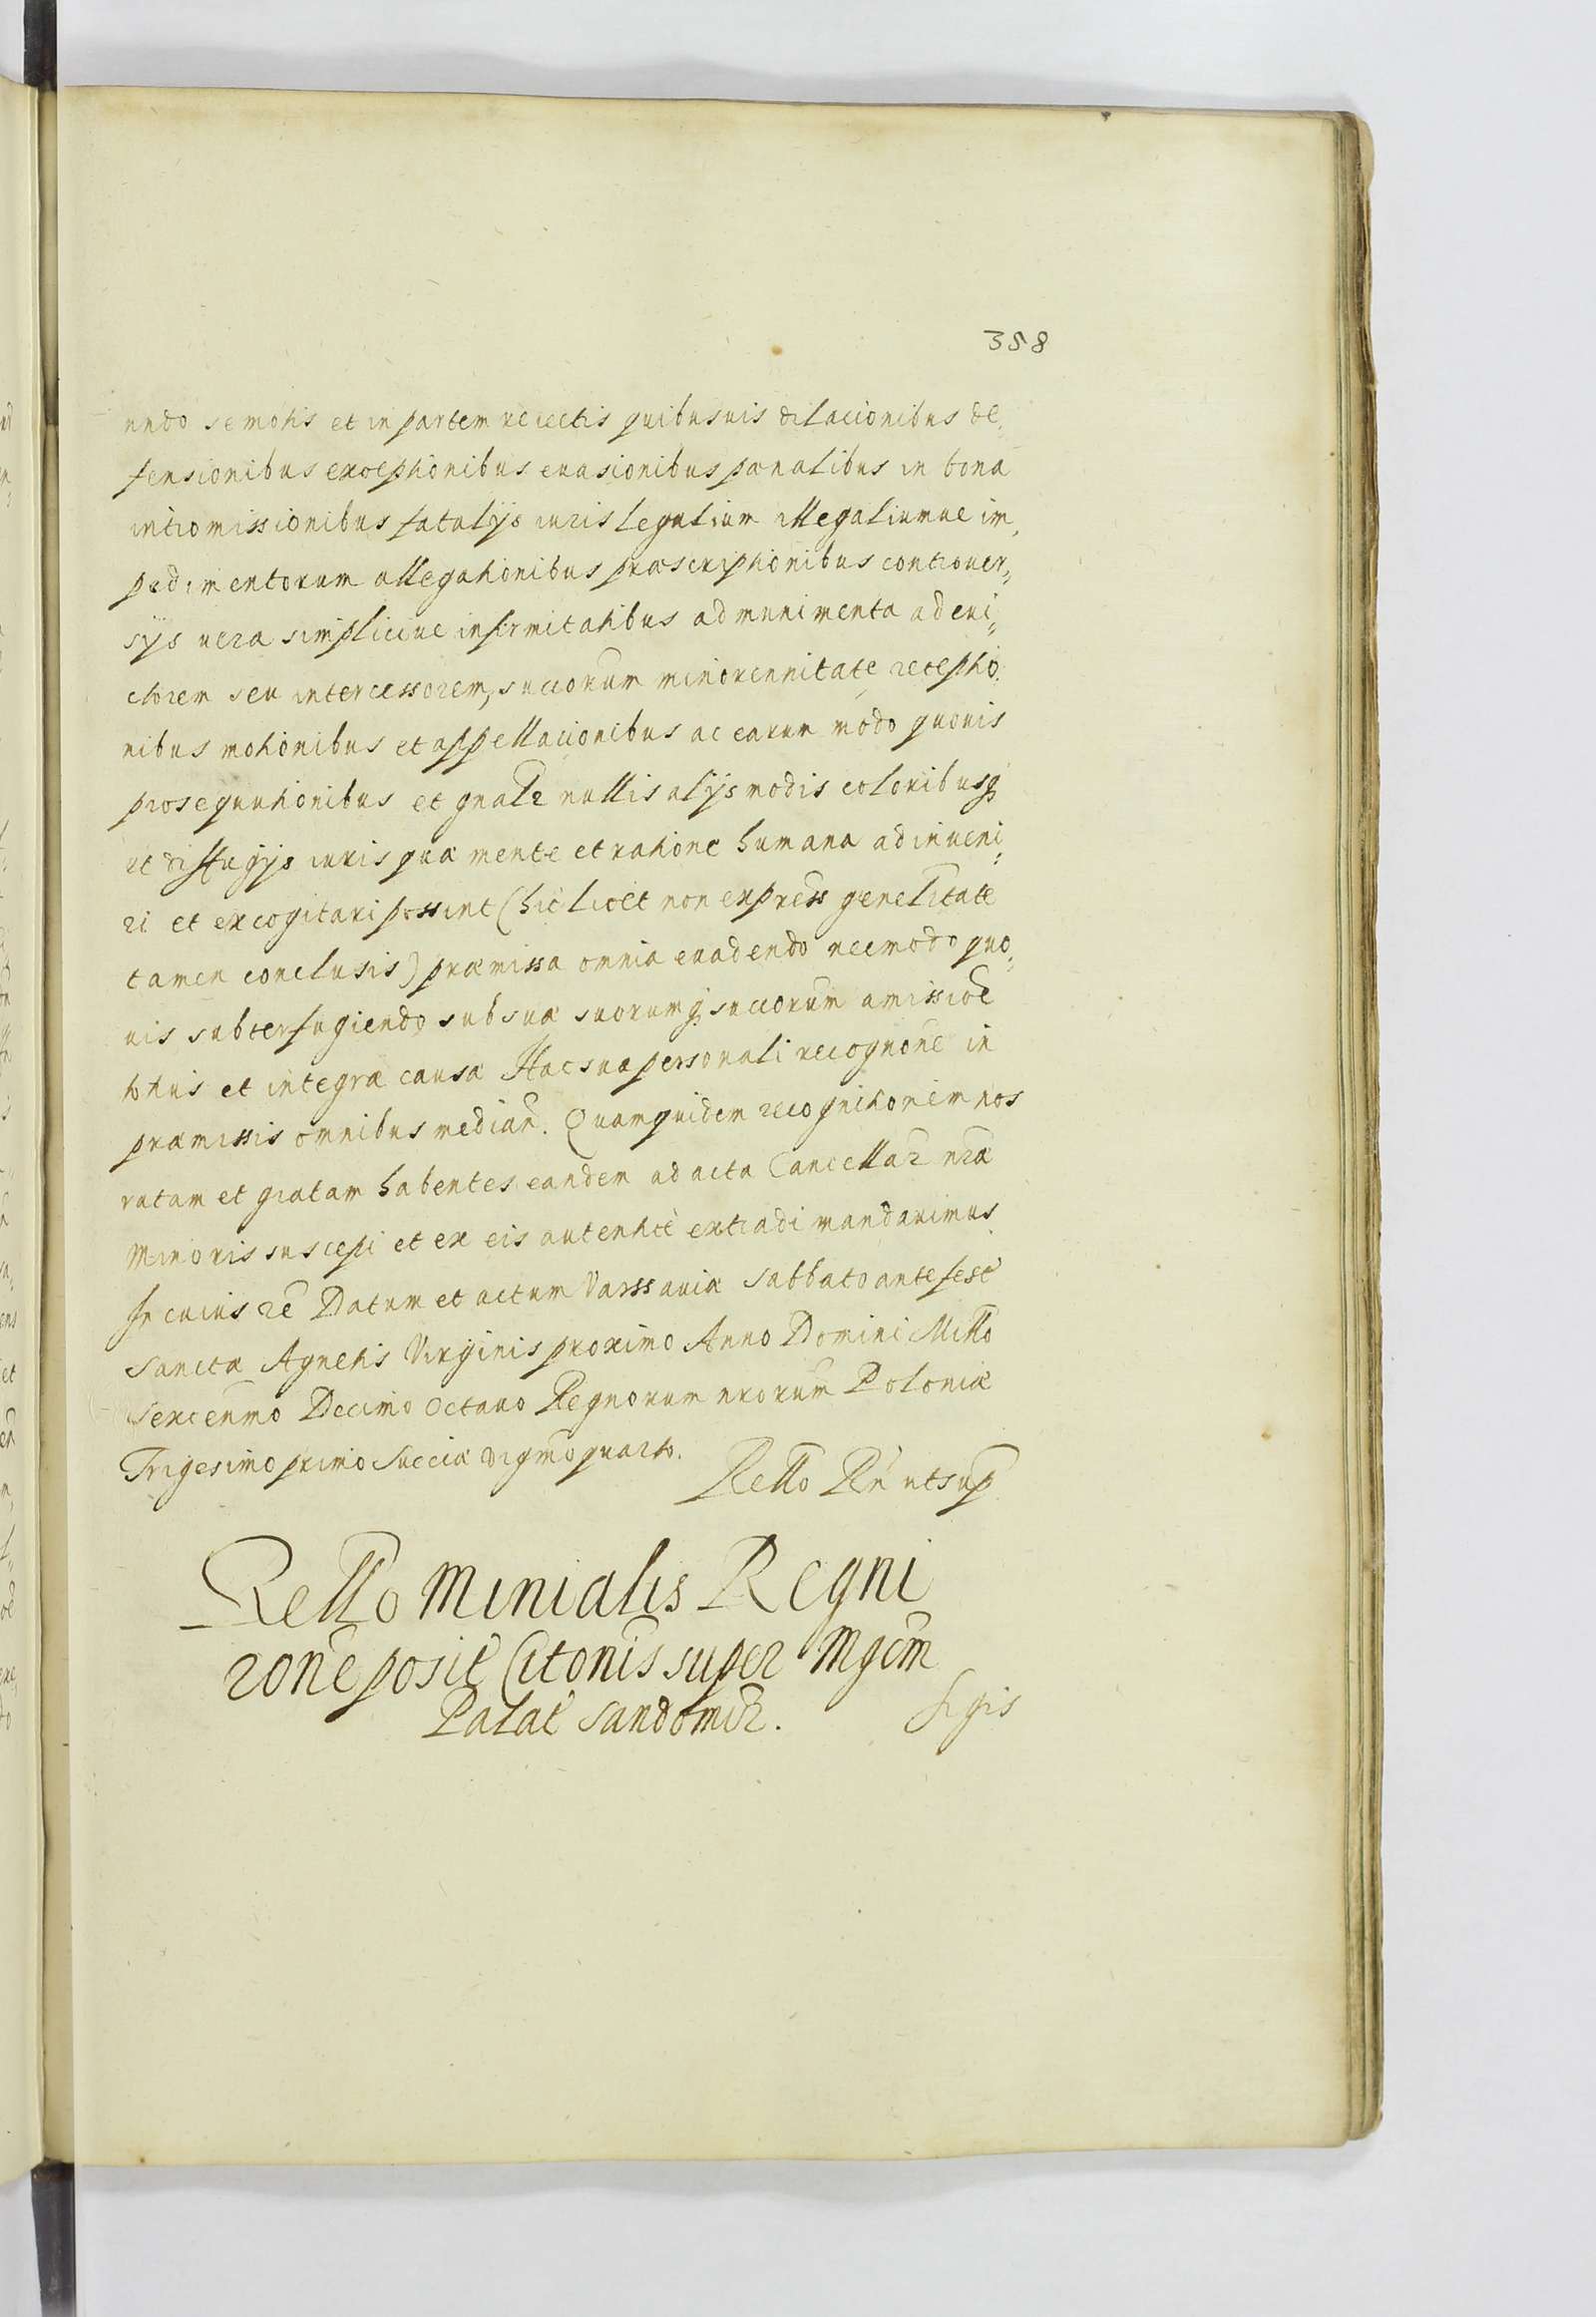 358
undo semotis et in partem reiectis quibusuis dilacionibus de,
fensionibus exceptionibus euasionibus pænalibus in bona
intromissionibus fatalijs iuris legalium illegaliumue im,
pedimentorum allegationibus præscriptionibus controuer,,
sijs uera simpliciue infirmitatibus ad munimenta ad eui,,
ctorem seu intercessorem, succorum minorennitate receptio,
nibus motionibus et appellacionibus ac earum modo quouis
prosequutionibus et gnalr nullis alijs modis coloribusq
et diffugijs iuris quæ mente et ratione humana adinueni,,
ri et excogitari possint (hic licet non express genelitate
tamen conclusis) præmissa omnia euadendo nec modo quo,,
uis subterfugiendo sub suæ suorumq succorum amissioe
totius et integræ causæ Hac sua personali recognone in
præmissis omnibus median. Quamquidem recognitionem nos
ratam et gratam habentes eandem ad acta Cancellar nræ
Minoris suscepi et ex eis autentice extradi mandauimus
In cuius re Datum et actum Varssauiæ Sabbato ante fest
Sanctæ Agnetis Virginis proximo Anno Domini Millo
Sexcenmo Decimo Octauo Regnorum nrorum Poloniæ
Trigesimo primo Sueciæ vigmo quarto.
Rello Rn ut sup
Rello Minialis Regni
rone posit Citonis super Mgcm
Palat Sandomir.
Sigis